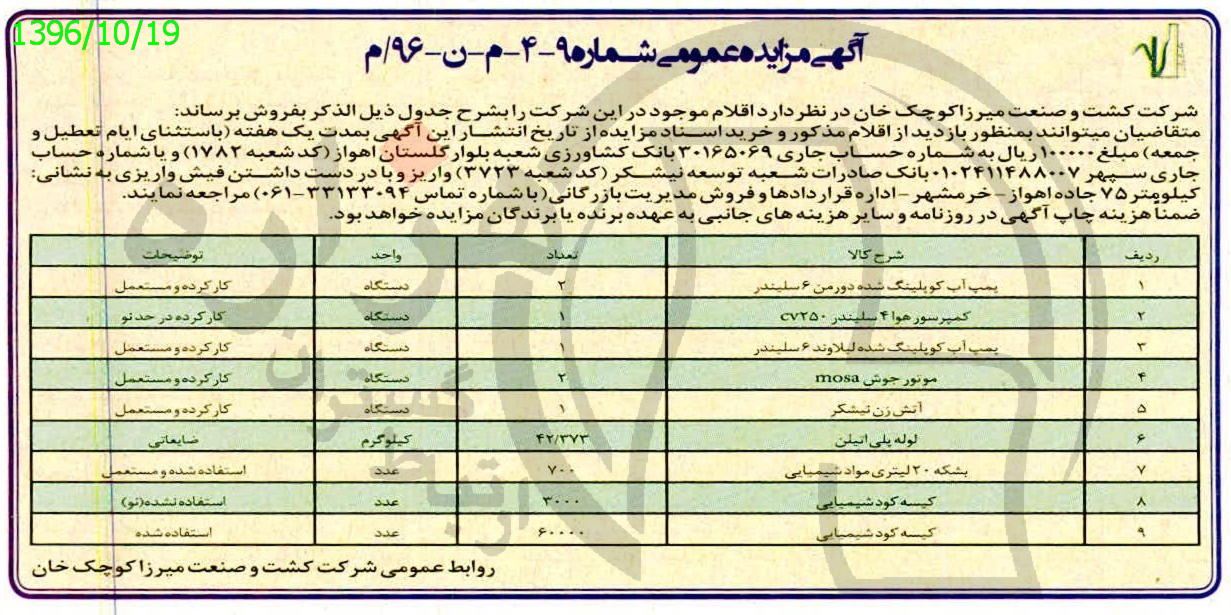 1396/10/19
آگهی مزایده عمومی شماره ۹-۴-م-ن-۹۶/م
شرکت کشت و صنعت میرزاکوچک خان در نظر دارد اقلام موجود در این شرکت را بشرح جدول ذیل الذکر بفروش برساند:
متقاضیان میتوانند بمنظور بازدید از اقلام مذکور و خرید اسناد مزایده از تاریخ انتشار این آگهی بمدت یک هفته (باستثنای ایام تعطیل و
جمعه) مبلغ ۱۰۰۰۰۰ ریال به شماره حساب جاری ۳۰۱۶۵۰۶۹ بانک کشاورزی شعبه بلوار گلستان اهواز (کد شعبه ۱۷۸۲) و یا شماره حساب
جاری سپهر ۰۱۰۲۴۱۱۴۸۸۰۰۷ بانک صادرات شعبه توسعه نیشکر (کد شعبه ۳۷۲۳) واریز و با در دست داشتن فیش واریزی به نشانی:
کیلومتر ۷۵ جاده اهواز - خرمشهر - اداره قراردادها و فروش مدیریت بازرگانی (با شماره تماس ۳۳۱۳۳۰۹۴-۰۶۱) مراجعه نمایند.
ضمناً هزینه چاپ آگهی در روزنامه و سایر هزینه های جانبی به عهده برنده یا برندگان مزایده خواهد بود.
ردیف شرح کالا تعداد واحد توضیحات
۱ پمپ آب کوپلینگ شده دورمن ۶ سلیندر ۲ دستگاه کارکرده و مستعمل
۲ کمپرسور هوا ۴ سلیندر CV۲۵۰ ۱ دستگاه کارکرده در حد نو
۳ پمپ آب کوپلینگ شده لیلاوند ۶ سلیندر ۱ دستگاه کارکرده و مستعمل
۴ موتور جوش mosa ۲ دستگاه کارکرده و مستعمل
۵ آتش زن نیشکر ۱ دستگاه کارکرده و مستعمل
۶ لوله پلی اتیلن ۴۲/۳۷۳ کیلوگرم ضایعاتی
۷ بشکه ۲۰ لیتری مواد شیمیایی ۷۰۰ عدد استفاده شده و مستعمل
۸ کیسه کود شیمیایی ۳۰۰۰ عدد استفاده نشده(نو)
۹ کیسه کود شیمیایی ۶۰۰۰۰ عدد استفاده شده
روابط عمومی شرکت کشت و صنعت میرزا کوچک خان